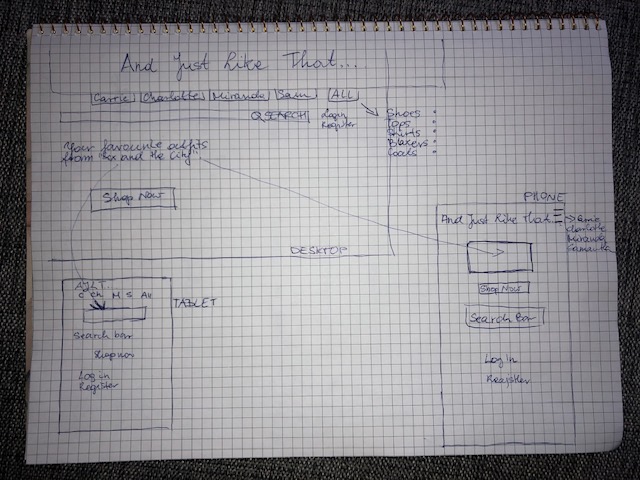 And Just Like That...
Carrie Charlotte Miranda Sam ALL
SEARCH
Login
Register
Shoes
Tops
Shirts
Blazers
Coats
Your favourite outfits
from Sex and the City
Shop Now
DESKTOP
AJLT...
C Ch M S All
Search bar
Shop now
Log in
Register
TABLET
PHONE
And Just Like That...
Charlotte
Miranda
Samantha
Shop Now
Search Bar
Log in
Register